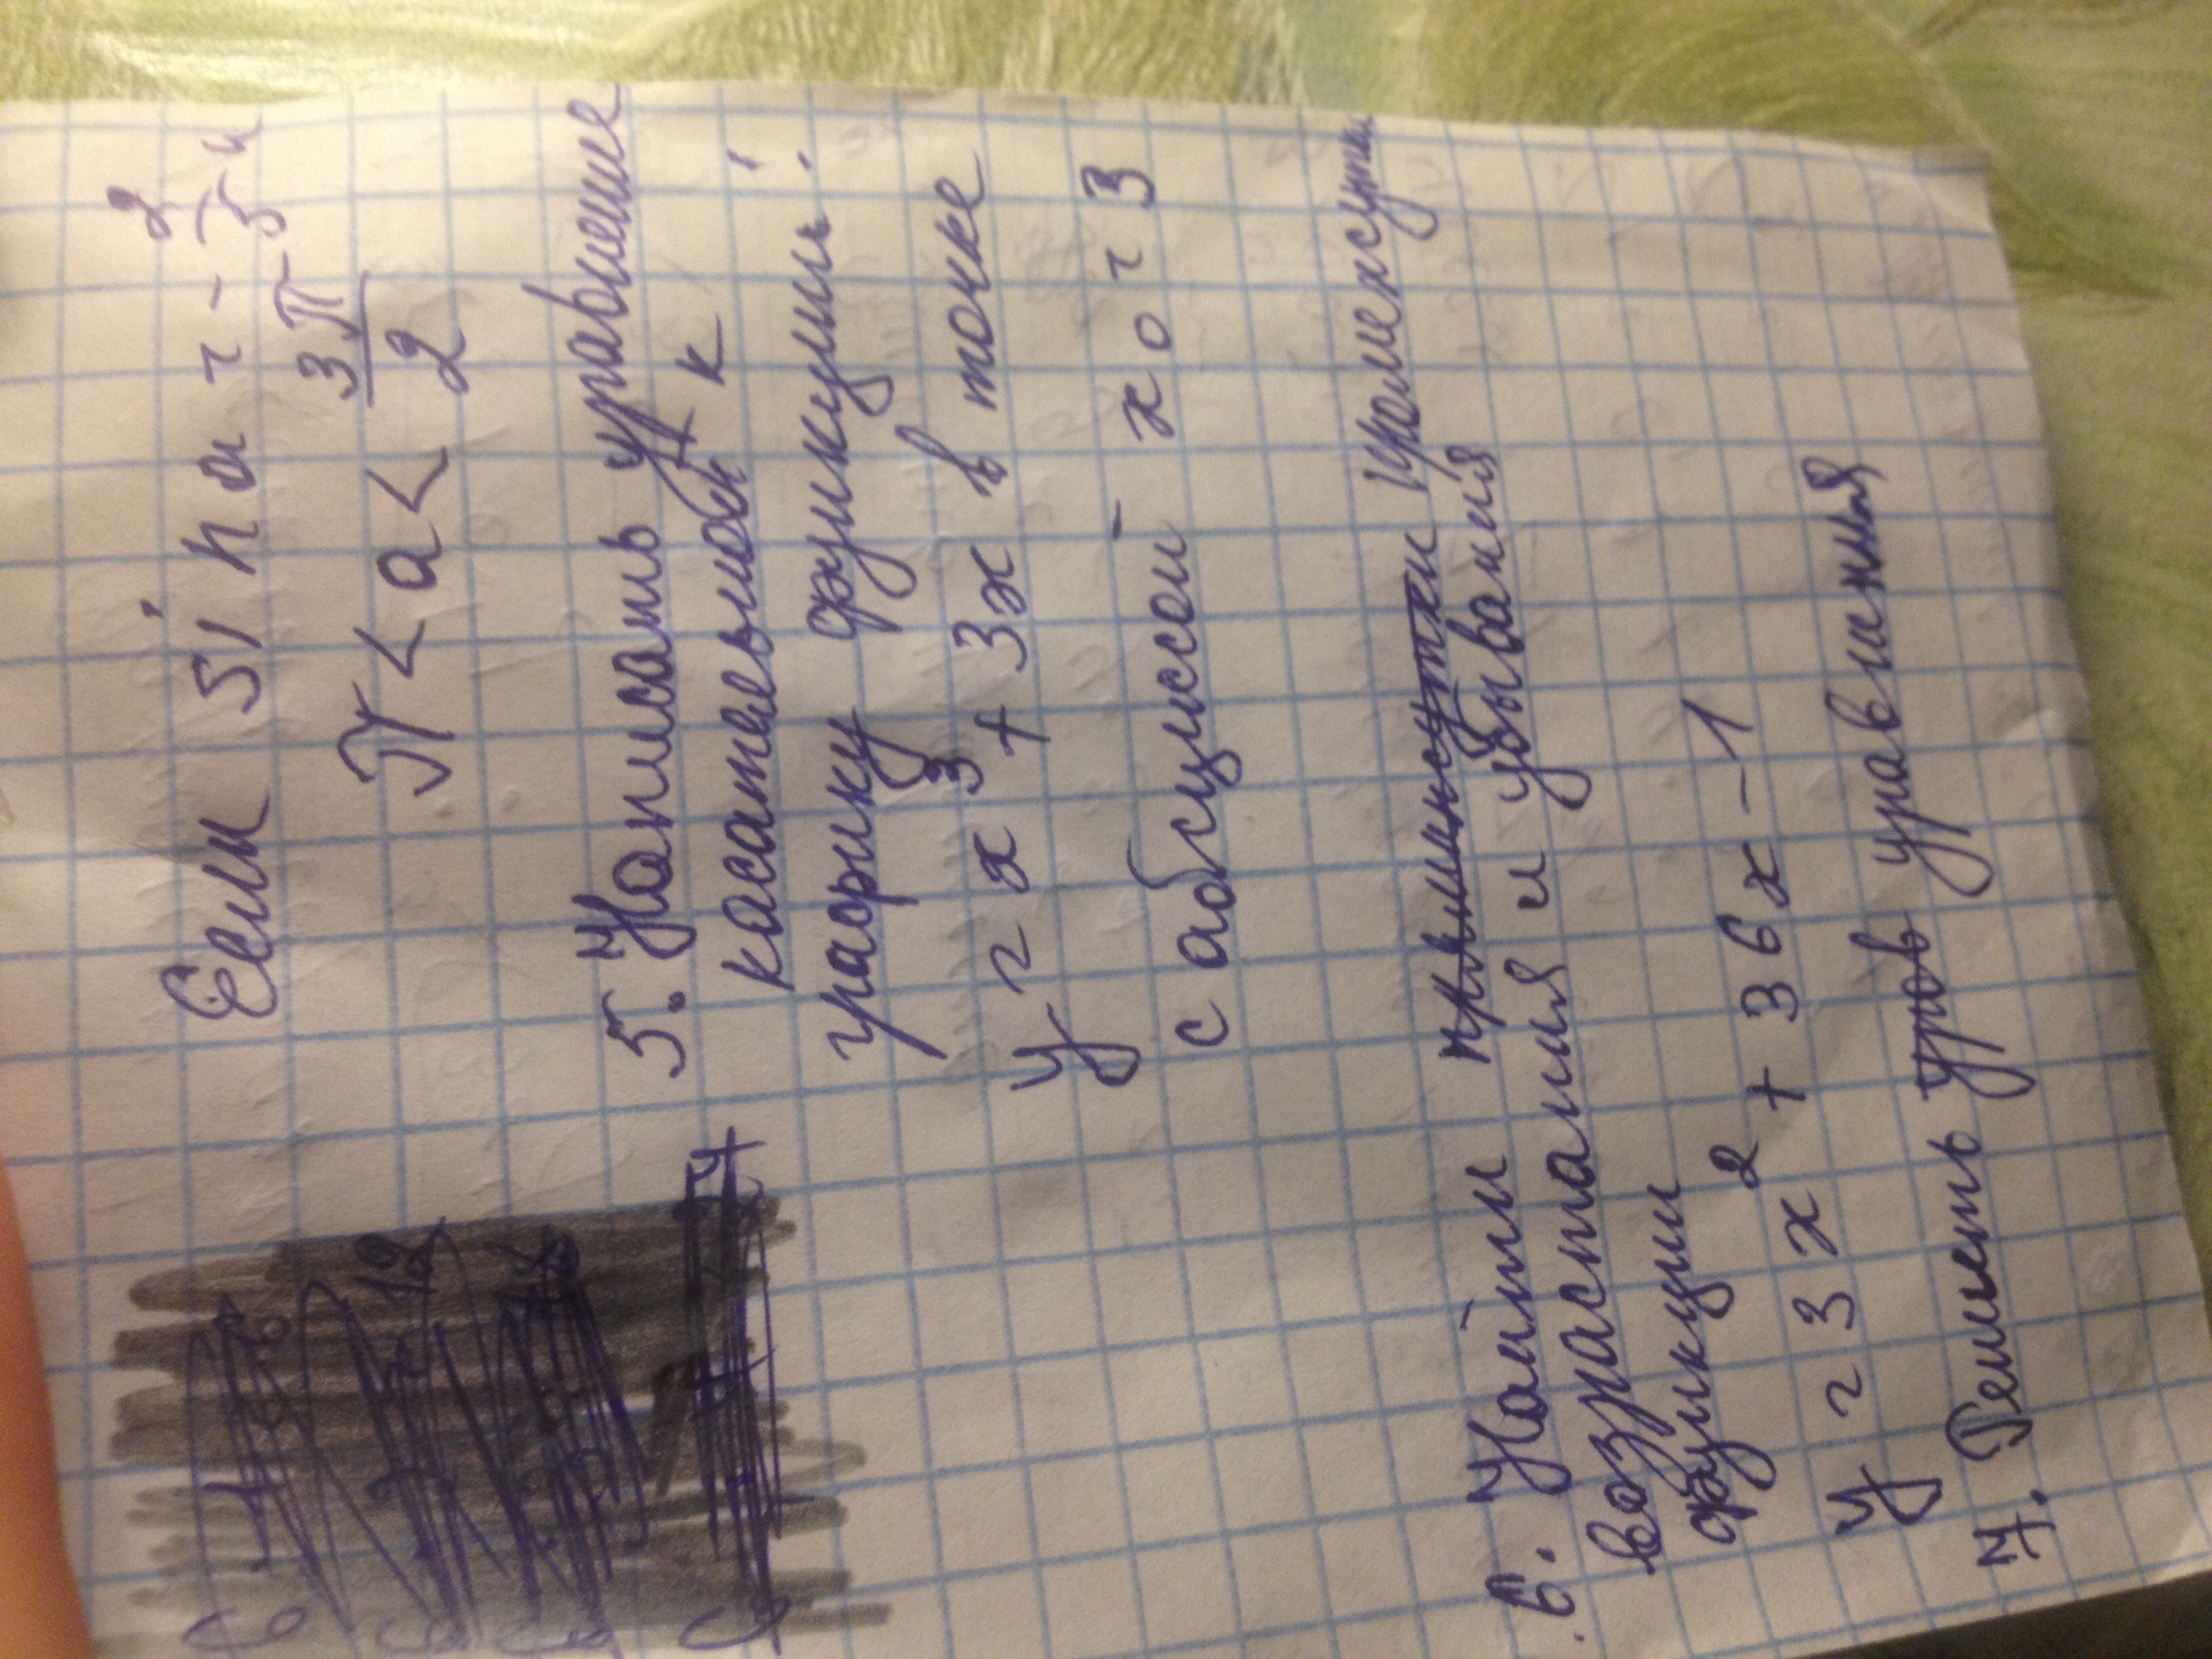 Если sin a = - 2/5 и
π < a < 3π/2
5. Написать уравнение
касательной к
графику функции
y = x³ + 3x в точке
с абциссой x₀ = 3
6. Найти промежутки
возрастания и убывания
функции
y = 3x² + 36x - 1
7. Решить уравнения